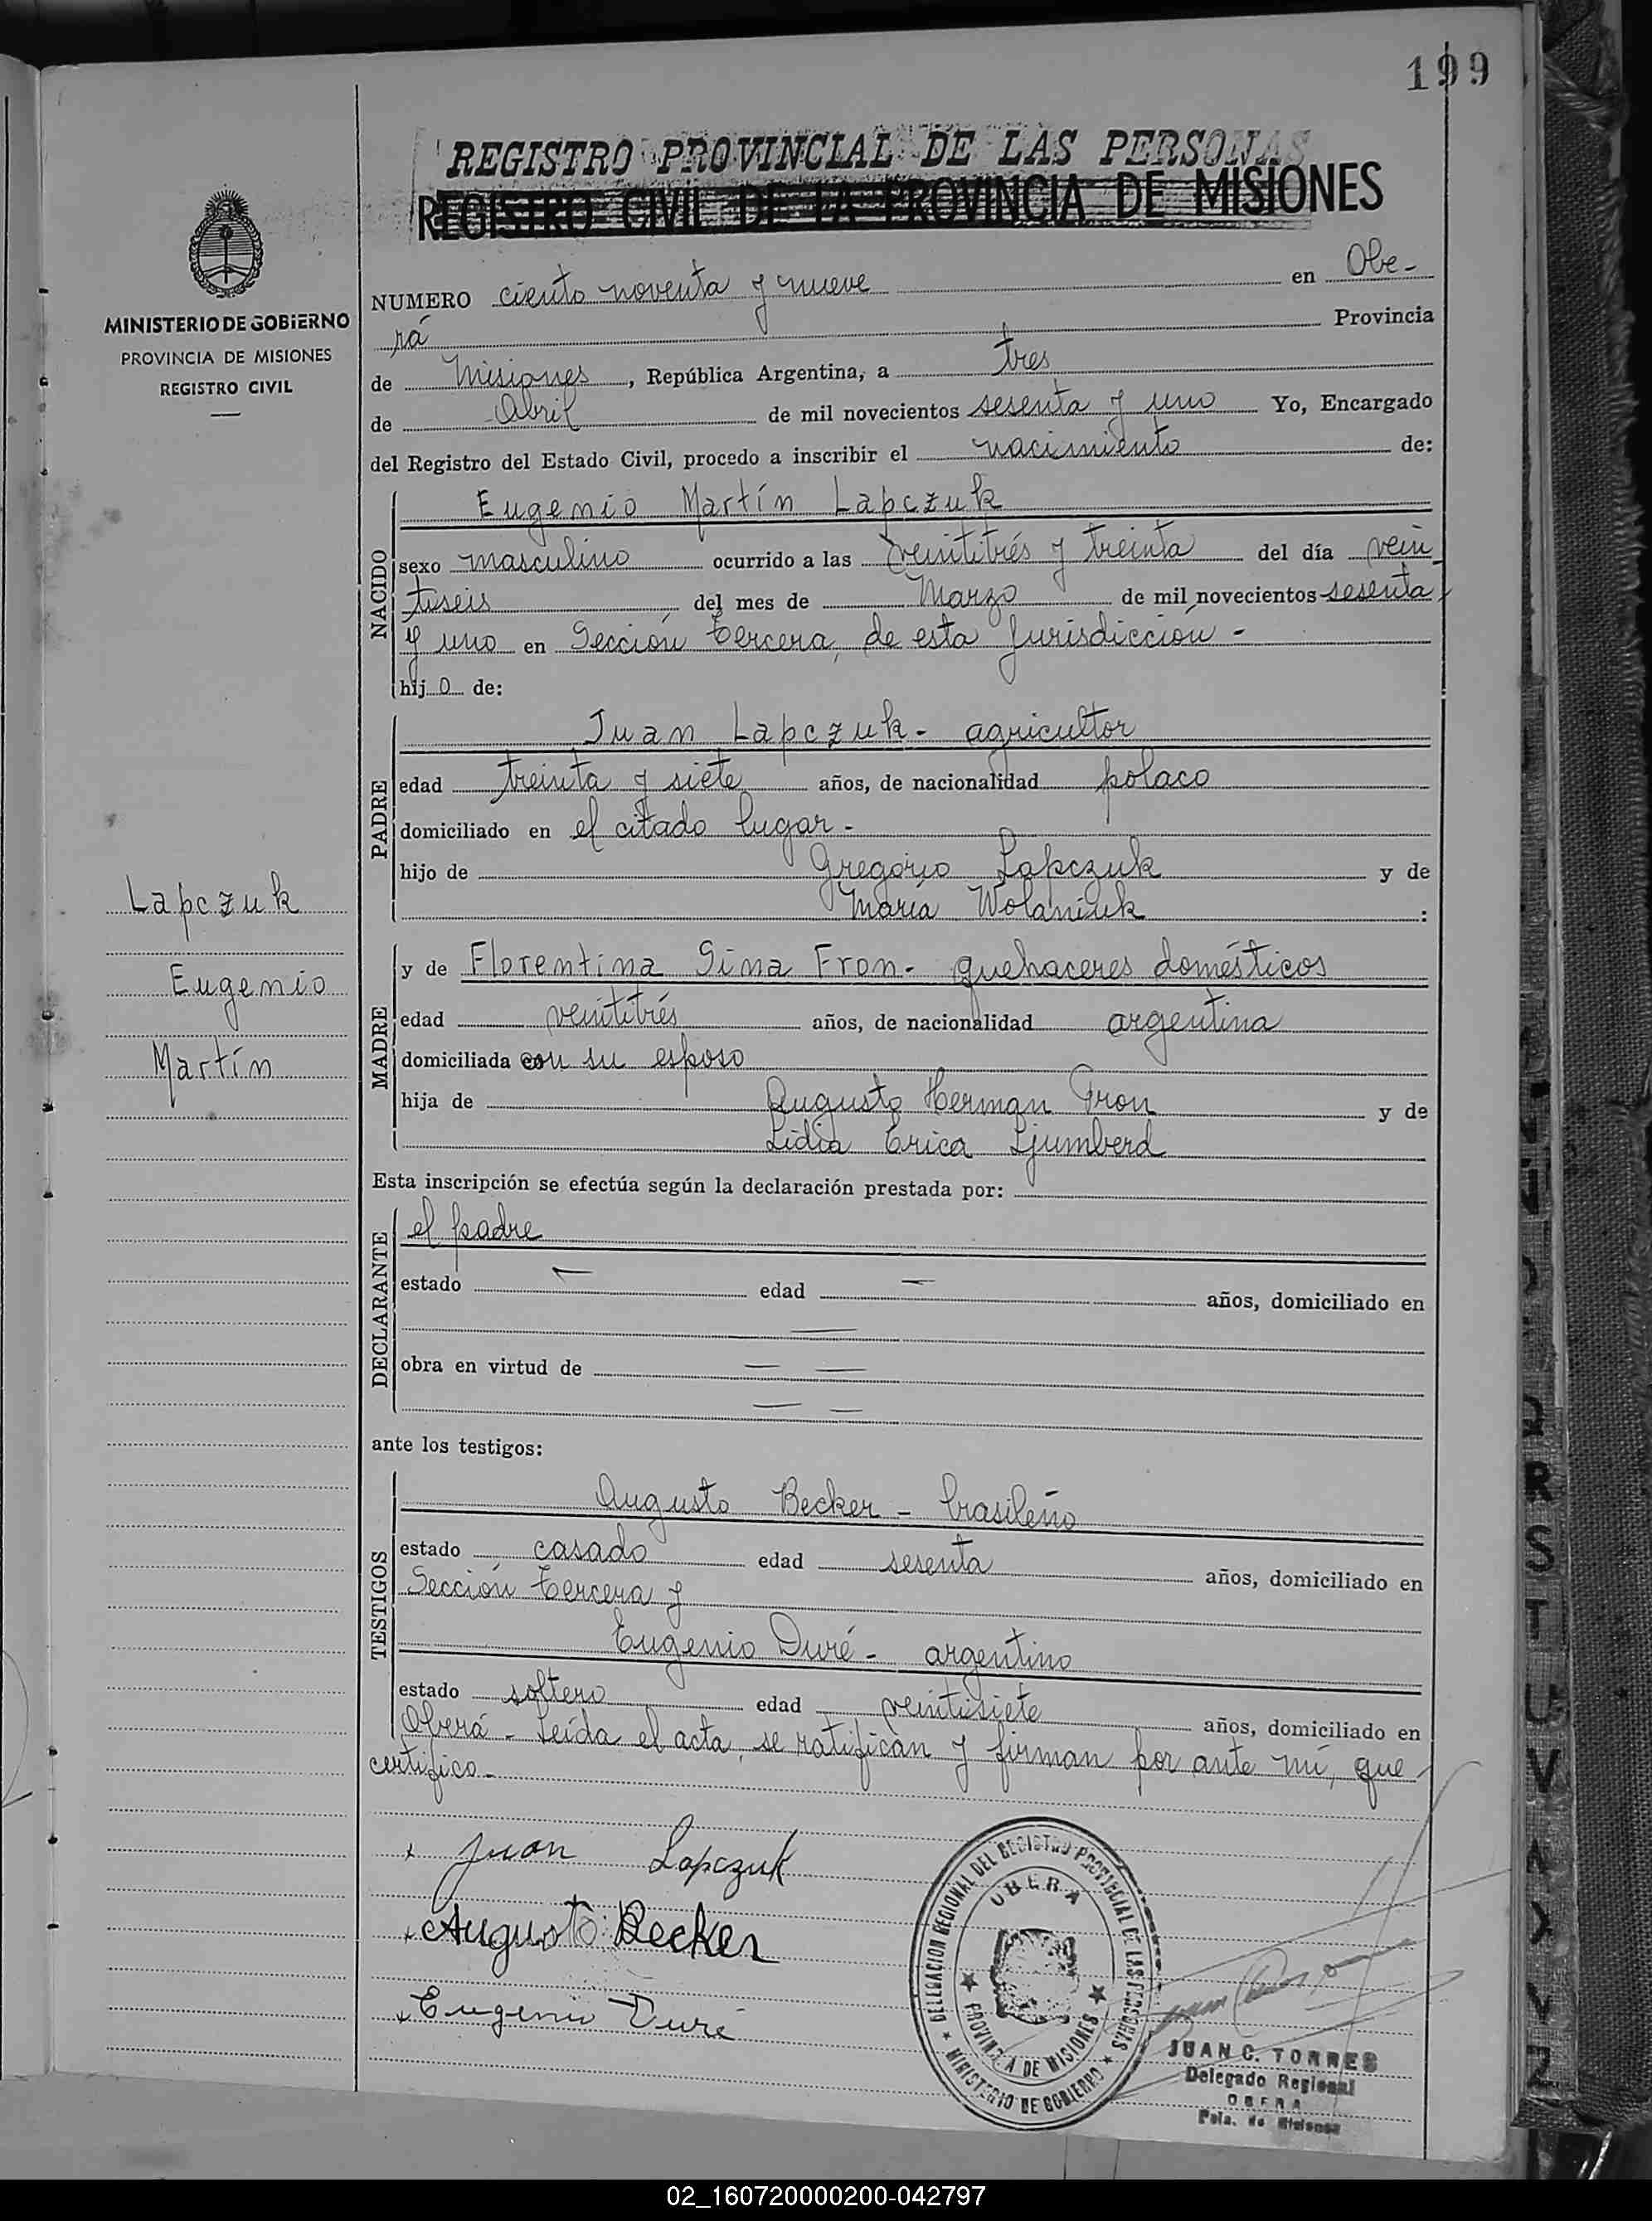 199
REGISTRO PROVINCIAL DE LAS PERSONAS
REGISTRO CIVIL DE LA PROVINCIA DE MISIONES
MINISTERIO DE GOBIERNO
PROVINCIA DE MISIONES
REGISTRO CIVIL
NUMERO ciento noventa y nueve en Obe-
rá Provincia
de Misiones, República Argentina, a tres
de Abril de mil novecientos sesenta y uno Yo, Encargado
del Registro del Estado Civil, procedo a inscribir el nacimiento de:
NACIDO
Eugenio Martín Lapczuk
sexo masculino ocurrido a las veintitrés y treinta del día vein
tiseis del mes de Marzo de mil novecientos sesenta
y uno en Sección tercera, de esta jurisdicción -
hijo de:
PADRE
Juan Lapczuk - agricultor
edad treinta y siete años, de nacionalidad polaco
domiciliado en el citado lugar -
hijo de Gregorio Lapczuk y de
María Wolaniuk :
Lapczuk
Eugenio
Martín
MADRE
y de Florentina Gima Fron - quehaceres domésticos
edad veintitrés años, de nacionalidad argentina
domiciliada con su esposo
hija de Augusto Herman Fron y de
Lidia Erica Ljumberd
Esta inscripción se efectúa según la declaración prestada por:
DECLARANTE
el padre
estado — edad — años, domiciliado en
—
obra en virtud de — —
— —
ante los testigos:
TESTIGOS
Augusto Becker - brasileño
estado casado edad sesenta años, domiciliado en
Sección tercera y
Eugenio Duré - argentino
estado soltero edad veintisiete años, domiciliado en
Oberá - Leída el acta, se ratifican y firman por ante mí, que
certifico -
Juan Lapczuk
Augusto Becker
Eugenio Duré
DELEGACION REGIONAL DEL REGISTRO PROVINCIAL DE LAS PERSONAS
OBERA
PROVINCIA DE MISIONES
MINISTERIO DE GOBIERNO
JUAN C. TORRES
Delegado Regional
OBERA
Pcia. de Misiones
R
S
T
U
V
X
Y
Z
02_160720000200-042797